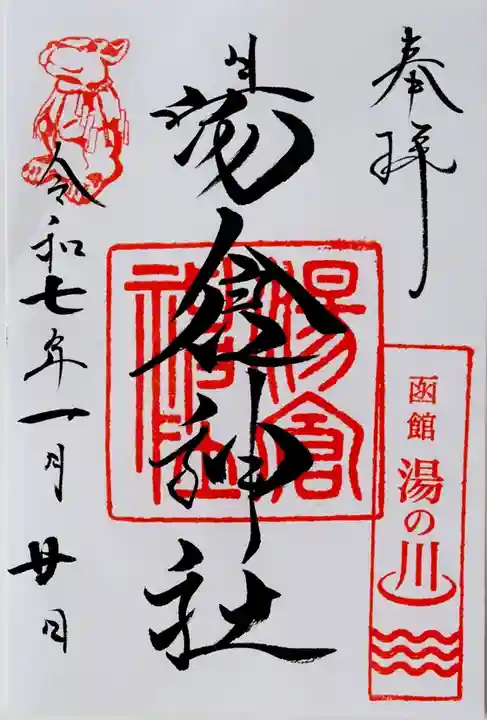 奉拝
湯倉神社
湯倉神社
函館 湯の川
令和七年一月廿日